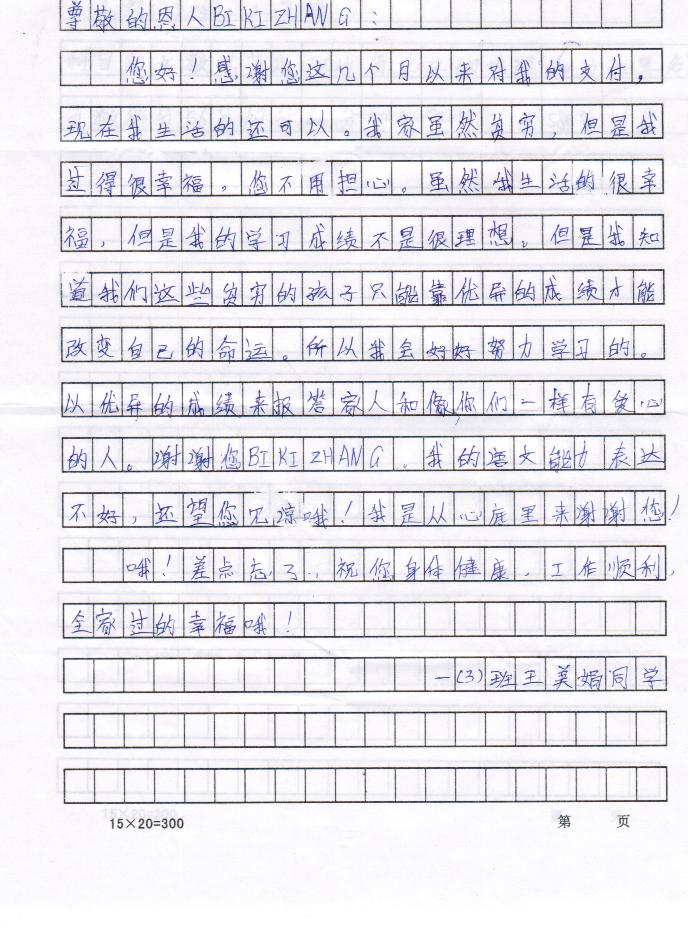 尊敬的恩人BIKIZHANG：
您好！感谢您这几个月以来对我的支付。
现在我生活的还可以。我家虽然贫穷，但是我
过得很幸福。您不用担心。虽然我生活的很幸
福，但是我的学习成绩不是很理想。但是我知
道我们这些贫穷的孩子只能靠优异的成绩才能
改变自己的命运。所以我会好好努力学习的。
以优异的成绩来报答家人和像你们一样有爱心
的人。谢谢您BIKIZHANG。我的语文能力表达
不好，还望您冗凉哦！我是从心底里来谢谢您！
哦！差点忘了，祝您身体健康，工作顺利，
全家过的幸福哦！
一(3)班王美娟同学
15×20=300
第 页